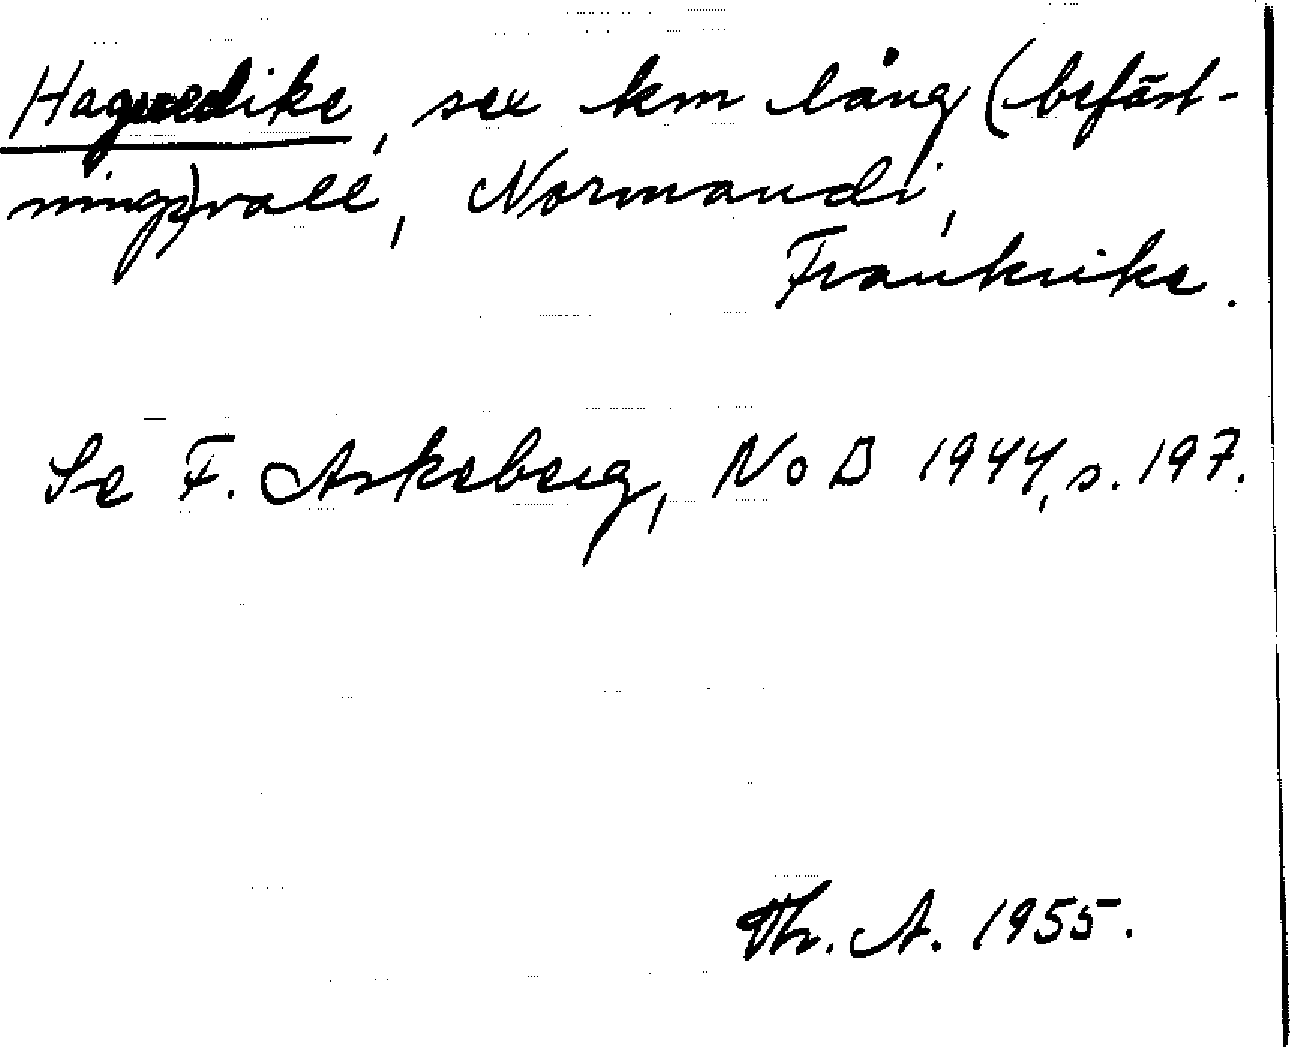 Haguedike, sex km lång (befäst-
nings)vall, Normandi,
Frankrike.
Se F. Askeberg, NoB 1944, s. 197.
Th. A. 1955.